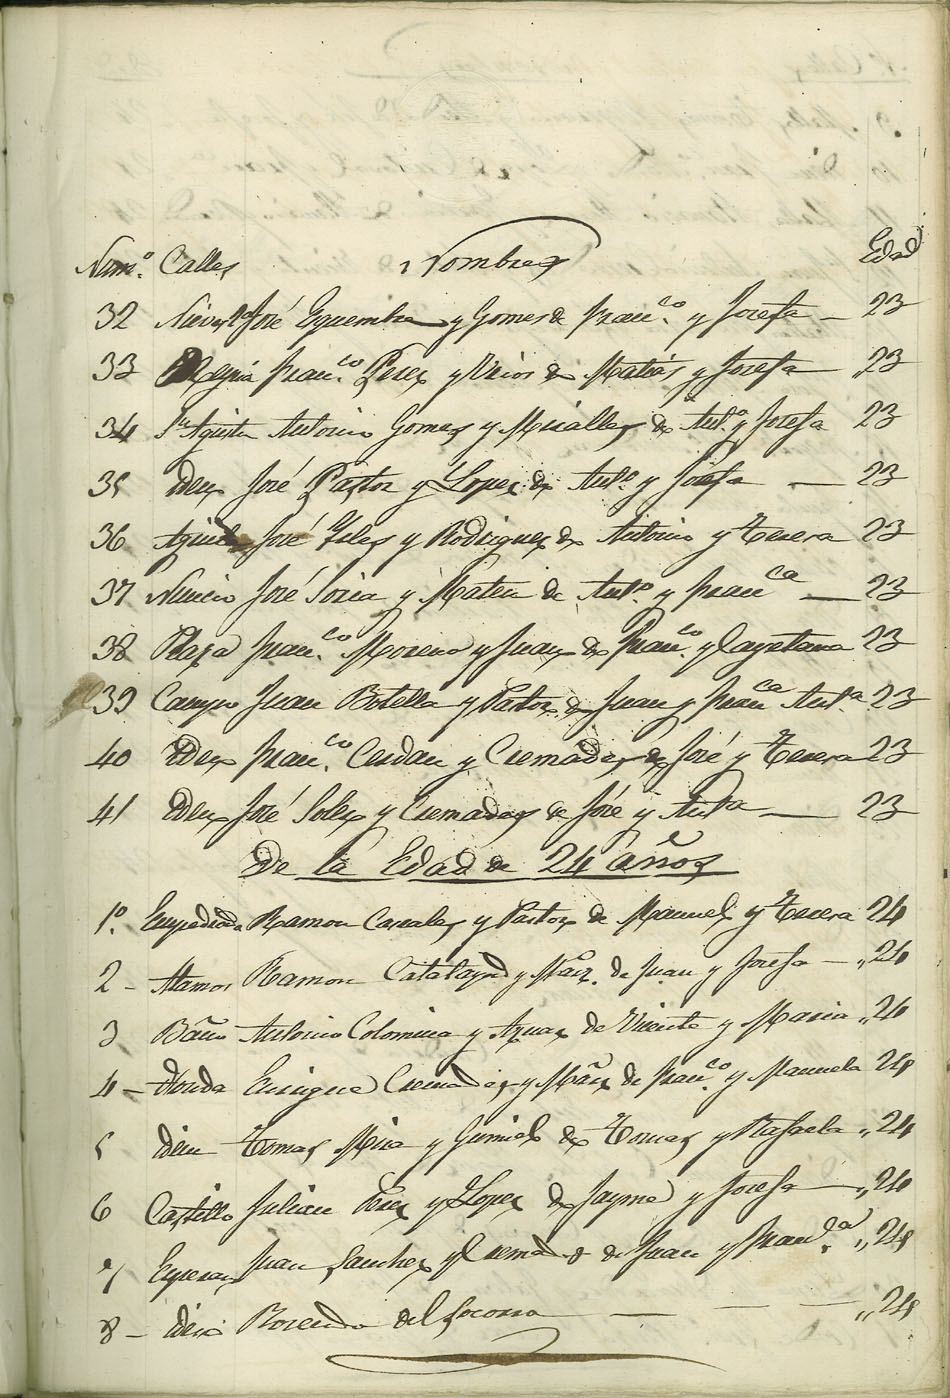 Num.º Calles Nombres Edad
32 José Esquembre y Gomes de Fran.co y Josefa 23
33 Fran.co Perez y de Matias y Josefa 23
34 Sn Agustin Antonio Gomez y Miralles de Ant.º y Josefa 23
35 Idem José Pastor y Lopez de Ant.º y Josefa 23
36 José Giles y Rodriguez de Antonio y Teresa 23
37 José Soria y Mateu de Ant.º y Fran.ca 23
38 Plaza Fran.co Moreno y Juan de Fran.co y Cayetana 23
39 Campo Juan Botella y Pastor de Juan y Fran.ca Ant.a 23
40 Idem Fran.co Cerdan y Cremades de José y Teresa 23
41 Idem José Soler y Cremades de José y Ant.a 23
De la Edad de 24 años
1º. Ramon Canales y Pastor de Manuel y Teresa 24
2 - Ramon Catalayud y de Juan y Josefa - „24
3 Baño Antonio Colomina y Aznar de Vicente y Maria „24
4 - Honda Enrique Cremades y de Fran.co y Manuela 24
5 Idem Tomas Mira y de Tomas y Rafaela „24
6 Castillo Julian Perez y Lopez de Jayme y Josefa „24
7 Juan Sanchez y de Juan y Fran.ca „24
8 - Idem Rosendo del Socorro „24